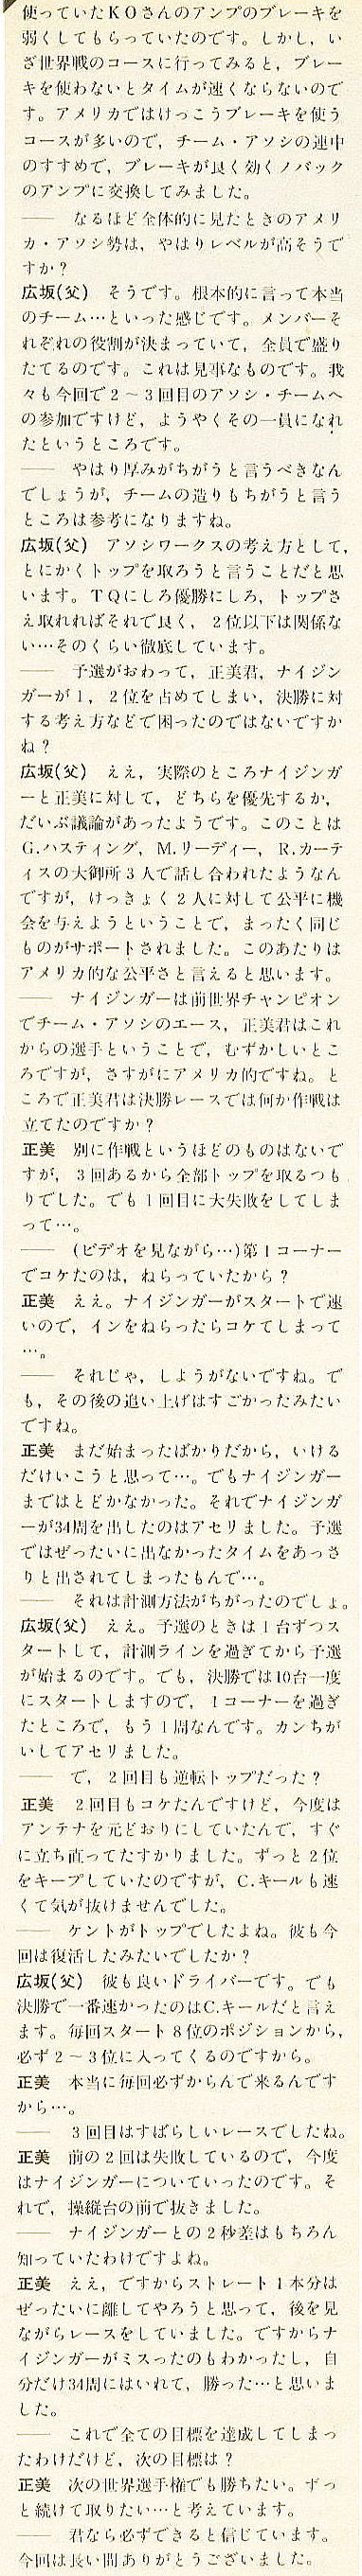 使っていたＫＯさんのアンプのブレーキを
弱くしてもらっていたのです。しかし，い
ざ世界戦のコースに行ってみると，ブレー
キを使わないとタイムが速くならないので
す。アメリカではけっこうブレーキを使う
コースが多いので，チーム・アソシの連中
のすすめで，ブレーキが良く効くノバック
のアンプに交換してみました。
―― なるほど全体的に見たときのアメリ
カ・アソシ勢は，やはりレベルが高そうで
すか？
広坂(父)　そうです。根本的に言って本当
のチーム…といった感じです。メンバーそ
れぞれの役割が決まっていて，全員で盛り
たてるのです。これは見事なものです。我
々も今回で２～３回目のアソシ・チームへ
の参加ですけど，ようやくその一員になれ
たというところです。
―― やはり厚みがちがうと言うべきなん
でしょうが，チームの造りもちがうと言う
ところは参考になりますね。
広坂(父)　アソシワークスの考え方として，
とにかくトップを取ろうと言うことだと思
います。ＴＱにしろ優勝にしろ，トップさ
え取れればそれで良く，２位以下は関係な
い…そのくらい徹底しています。
―― 予選がおわって，正美君，ナイジン
ガーが１，２位を占めてしまい，決勝に対
する考え方などで困ったのではないですか
ね？
広坂(父)　ええ，実際のところナイジンガ
ーと正美に対して，どちらを優先するか，
だいぶ議論があったようです。このことは
G.ハスティング，M.リーディー，R.カーテ
ィスの大御所３人で話し合われたようなん
ですが，けっきょく２人に対して公平に機
会を与えようということで，まったく同じ
ものがサポートされました。このあたりは
アメリカ的な公平さと言えると思います。
―― ナイジンガーは前世界チャンピオン
でチーム・アソシのエース，正美君はこれ
からの選手ということで，むずかしいとこ
ろですが，さすがにアメリカ的ですね。と
ころで正美君は決勝レースでは何か作戦は
立てたのですか？
正美　別に作戦というほどのものはないで
すが，３回あるから全部トップを取るつも
りでした。でも１回目に大失敗をしてしま
って…。
―― (ビデオを見ながら…)第１コーナー
でコケたのは，ねらっていたから？
正美　ええ。ナイジンガーがスタートで速
いので，インをねらったらコケてしまって
…。
―― それじゃ，しようがないですね。で
も，その後の追い上げはすごかったみたい
ですね。
正美　まだ始まったばかりだから，いける
だけいこうと思って…。でもナイジンガー
まではとどかなかった。それでナイジンガ
ーが34周を出したのはアセリました。予選
ではぜったいに出なかったタイムをあっさ
りと出されてしまったもんで…。
―― それは計測方法がちがったのでしょ。
広坂(父)　ええ。予選のときは１台ずつス
タートして，計測ラインを過ぎてから予選
が始まるのです。でも，決勝では10台一度
にスタートしますので，１コーナーを過ぎ
たところで，もう１周なんです。カンちが
いしてアセリました。
―― で，２回目も逆転トップだった？
正美　２回目もコケたんですけど，今度は
アンテナを元どおりにしていたんで，すぐ
に立ち直ってたすかりました。ずっと２位
をキープしていたのですが，C.キールも速
くて気が抜けませんでした。
―― ケントがトップでしたよね。彼も今
回は復活したみたいでしたか？
広坂(父)　彼も良いドライバーです。でも
決勝で一番速かったのはC.キールだと言え
ます。毎回スタート８位のポジションから，
必ず２～３位に入ってくるのですから。
正美　本当に毎回必ずからんで来るんです
から…。
―― ３回目はすばらしいレースでしたね。
正美　前の２回は失敗しているので，今度
はナイジンガーについていったのです。そ
れで，操縦台の前で抜きました。
―― ナイジンガーとの２秒差はもちろん
知っていたわけですよね。
正美　ええ，ですからストレート１本分は
ぜったいに離してやろうと思って，後を見
ながらレースをしていました。ですからナ
イジンガーがミスったのもわかったし，自
分だけ34周にはいれて，勝った…と思いま
した。
―― これで全ての目標を達成してしまっ
たわけだけど，次の目標は？
正美　次の世界選手権でも勝ちたい。ずっ
と続けて取りたい…と考えています。
―― 君なら必ずできると信じています。
今回は長い間ありがとうございました。